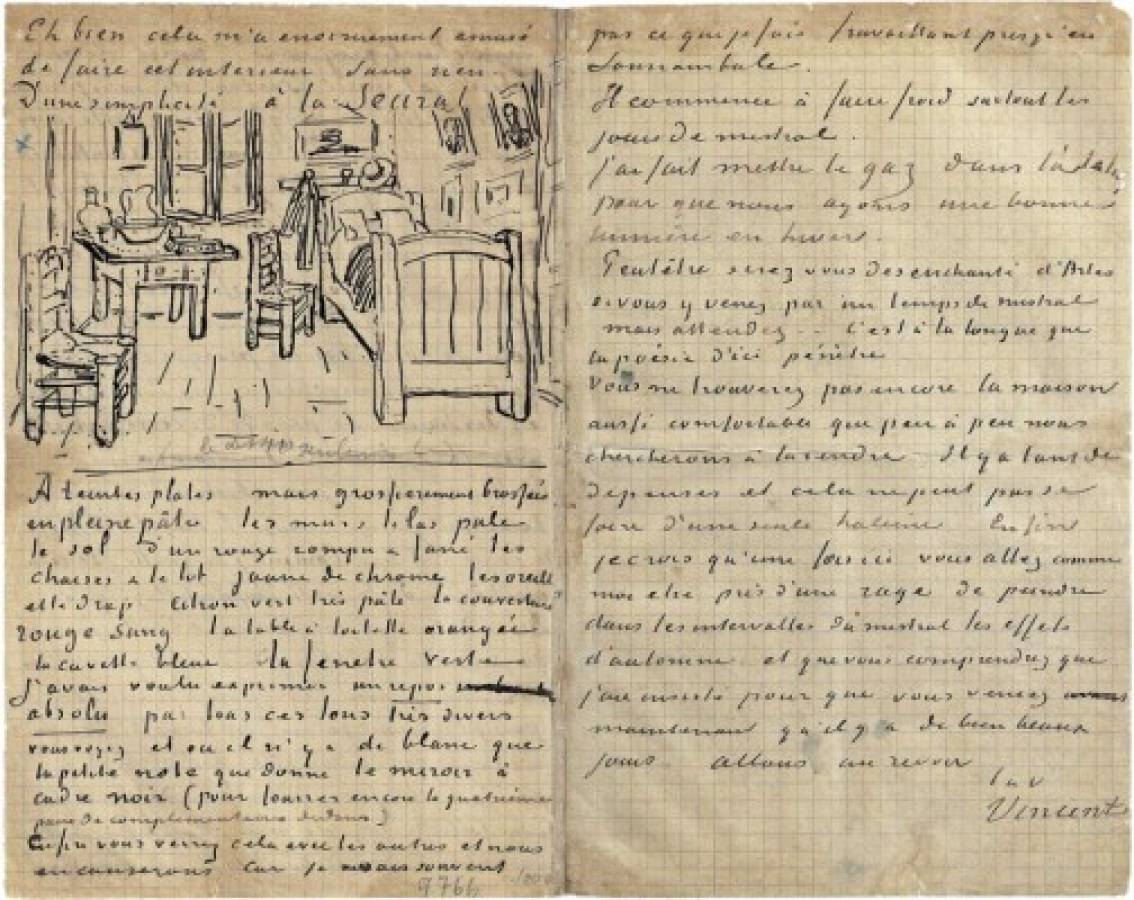 Eh bien cela m'a enormement amusé
de faire cet interieur sans rien.
D'une simplicité à la Seurat
A teintes plates mais grossierement brossées
en pleine pâte les murs lilas pale
le sol d'un rouge rompu & fané les
chaises & le lit jaune de chrome les oreill
et le drap citron vert très pâle la couverture
rouge sang la table à toilette orangée
la cuvette bleue la fenetre verte
J'avais voulu exprimer un repos
absolu par tous ces tons très divers
vous voyez et où il n'y a de blanc que
la petite note que donne le miroir à
cadre noir (pour fourrer encore la quatrième
paire de complementaires dedans)
Enfin vous verrez cela avec les autres et nous
en causerons car je ne sais souvent
9766
pas ce que je fais travaillant presqu'en
somnambule.
Il commence à faire froid surtout les
jours de mistral.
J'ai fait mettre le gaz dans l'atelier
pour que nous ayons une bonne
lumière en hiver.
Peutêtre serez vous desenchanté d'Arles
si vous y venez par un temps de mistral
mais attendez -- C'est à la longue que
la poésie d'ici pénètre
Vous ne trouverez pas encore la maison
aussi comfortable que peu à peu nous
chercherons à la rendre. Il y a tant de
depenses et cela ne peut pas se
faire d'une seule haleine. Enfin
je crois qu'une fois ici vous allez comme
moi etre pris d'une rage de peindre
dans les intervalles du mistral les effets
d'automne. et que vous comprendrez que
j'aie insisté pour que vous veniez
maintenant qu'il y a de bien beaux
jours. allons au revoir
t. à v.
Vincent